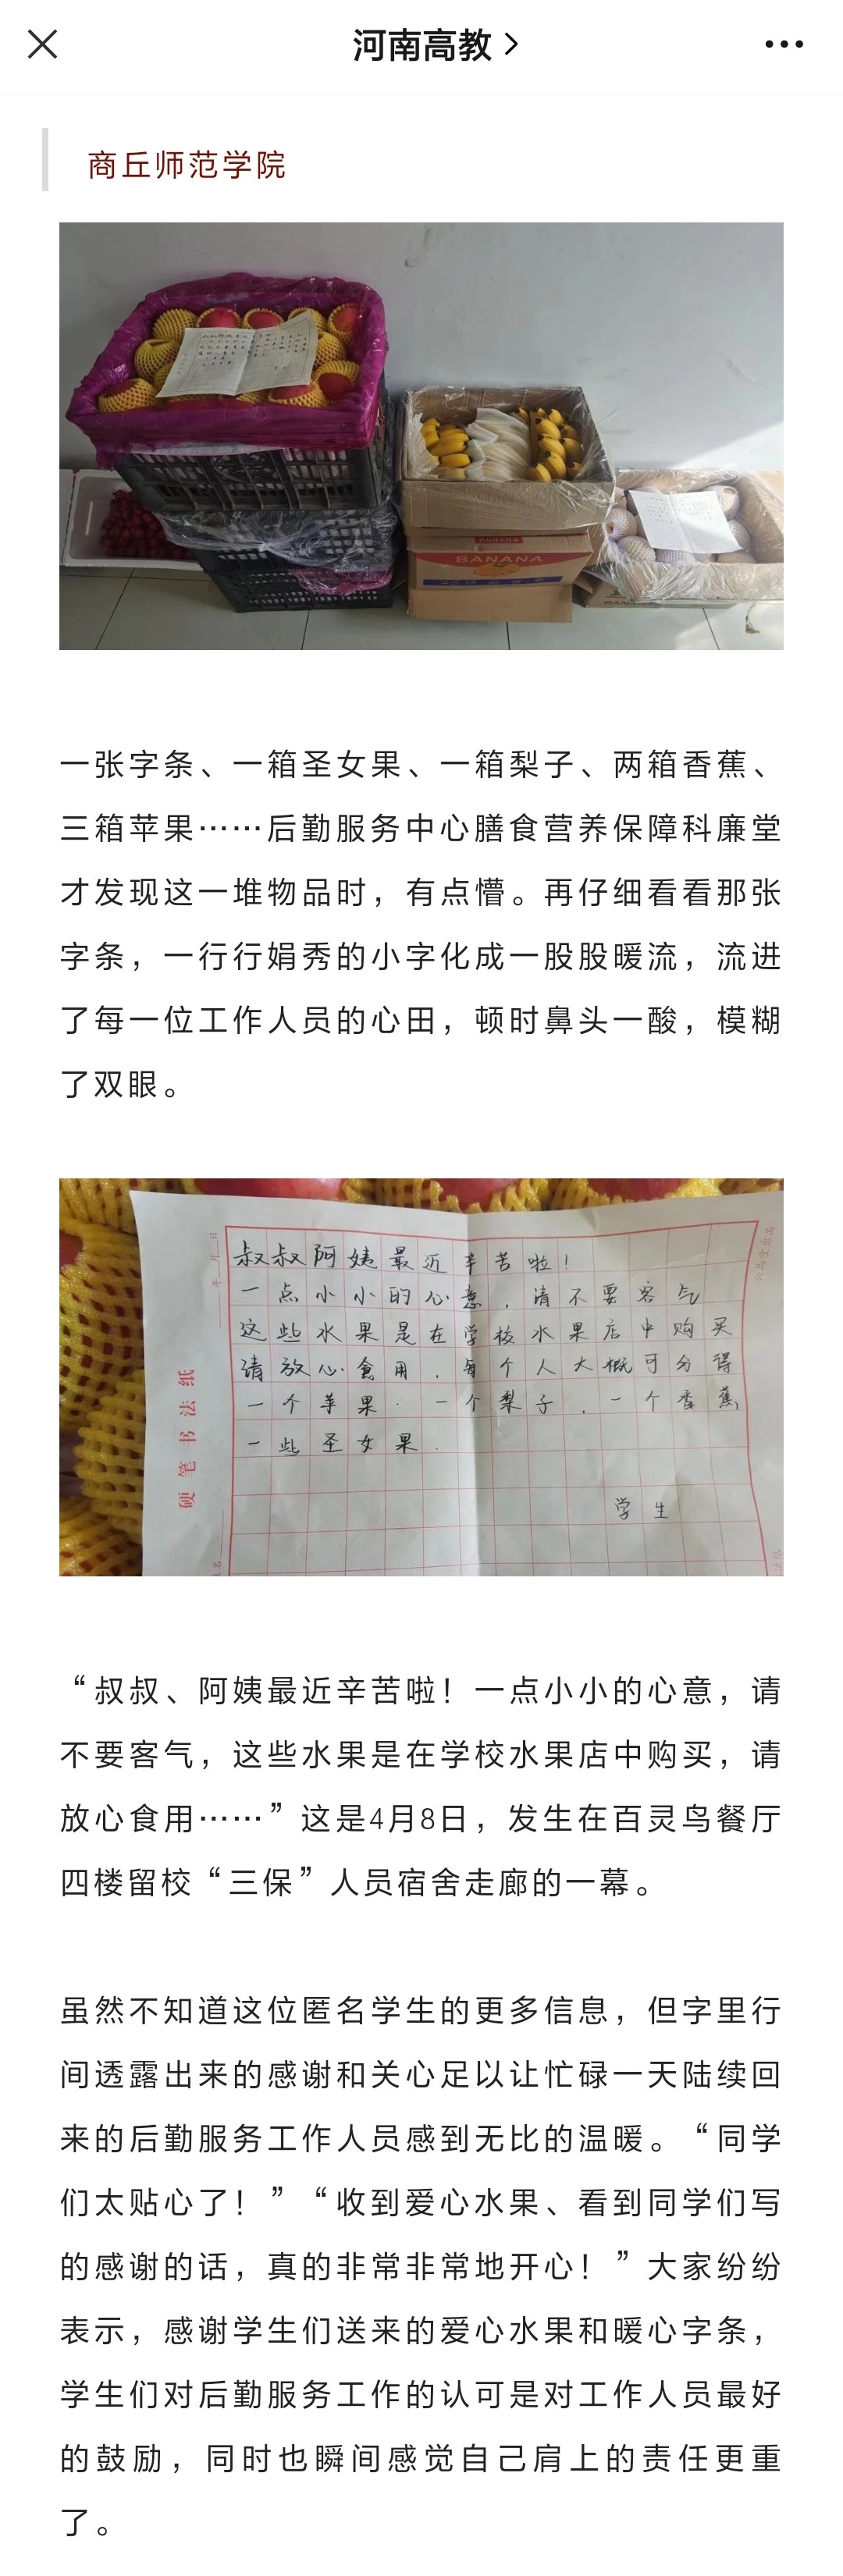 河南高教
商丘师范学院
BANANA
BANANA
一张字条、一箱圣女果、一箱梨子、两箱香蕉、
三箱苹果……后勤服务中心膳食营养保障科廉堂
才发现这一堆物品时，有点懵。再仔细看看那张
字条，一行行娟秀的小字化成一股股暖流，流进
了每一位工作人员的心田，顿时鼻头一酸，模糊
了双眼。
年 月 日
硬笔书法纸
叔叔阿姨最近辛苦啦！
一点小小的心意，请不要客气
这些水果是在学校水果店中购买
请放心食用，每个人大概可分得
一个苹果．一个梨子．一个香蕉，
一些圣女果．
学生
“叔叔、阿姨最近辛苦啦！一点小小的心意，请
不要客气，这些水果是在学校水果店中购买，请
放心食用……”这是4月8日，发生在百灵鸟餐厅
四楼留校“三保”人员宿舍走廊的一幕。
虽然不知道这位匿名学生的更多信息，但字里行
间透露出来的感谢和关心足以让忙碌一天陆续回
来的后勤服务工作人员感到无比的温暖。“同学
们太贴心了！”“收到爱心水果、看到同学们写
的感谢的话，真的非常非常地开心！”大家纷纷
表示，感谢学生们送来的爱心水果和暖心字条，
学生们对后勤服务工作的认可是对工作人员最好
的鼓励，同时也瞬间感觉自己肩上的责任更重
了。